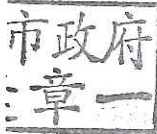 市政府
章一